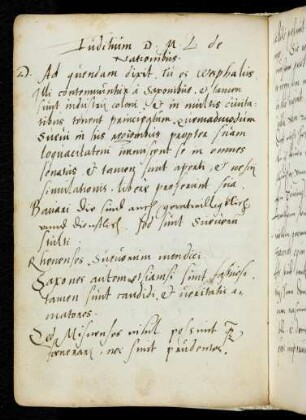 Iudicium D. M. L. de
Nationibus.
Ad quendam dixit, tu es Wesphalus
illi contemnuntur a Saxonibus, et tamen
sunt industrii coloni, et in multis civita-
tibus tenent principatum, quemadmodum
Suevi in his regionibus propter suam
loquacitatem immiscent se in omnes
senatus et tamen sunt aperti, et nesciunt
simulationis, libere proferunt sua,
Bavari die sind auch
unnd dienstlich, sed sunt Suevorum
stulti.
Rhenenses, Suevorum mendici
Saxones autem etiamsi sunt
tamen sunt candidi, et veritatis a-
matores.
Sed Misnenses nihil possunt
, nec sunt prudentes.